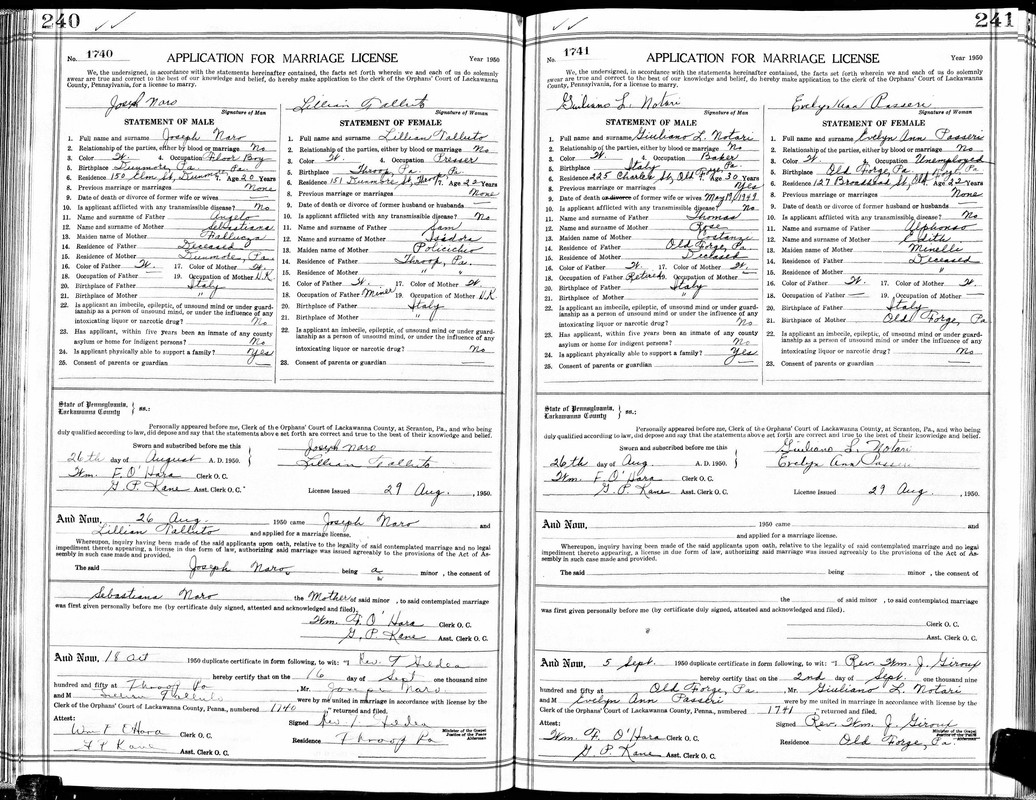 240
No. 1740 APPLICATION FOR MARRIAGE LICENSE Year 1950
We, the undersigned, in accordance with the statements hereinafter contained, the facts set forth wherein we and each of us do solemnly
swear are true and correct to the best of our knowledge and belief, do hereby make application to the clerk of the Orphans' Court of Lackawanna
County, Pennsylvania, for a license to marry.
Joseph Naro Lillian Talluto
Signature of Man Signature of Woman
STATEMENT OF MALE
1. Full name and surname Joseph Naro
2. Relationship of the parties, either by blood or marriage No
3. Color W. 4. Occupation Floor Boy
5. Birthplace Dunmore, Pa.
6. Residence 150 Elm St, Dunmore 7. Age 20 Years
8. Previous marriage or marriages None
9. Date of death or divorce of former wife or wives —
10. Is applicant afflicted with any transmissible disease? No
11. Name and surname of Father Angelo
12. Name and surname of Mother Sebastiana
13. Maiden name of Mother
14. Residence of Father Deceased
15. Residence of Mother Dunmore, Pa.
16. Color of Father W. 17. Color of Mother W.
18. Occupation of Father — 19. Occupation of Mother H.K.
20. Birthplace of Father Italy
21. Birthplace of Mother "
22. Is applicant an imbecile, epileptic, of unsound mind or under guard-
ianship as a person of unsound mind, or under the influence of any
intoxicating liquor or narcotic drug? No
23. Has applicant, within five years been an inmate of any county
asylum or home for indigent persons? No
24. Is applicant physically able to support a family? Yes
25. Consent of parents or guardian
STATEMENT OF FEMALE
1. Full name and surname Lillian Talluto
2. Relationship of the parties, either by blood or marriage No
3. Color W. 4. Occupation Presser
5. Birthplace Throop, Pa.
6. Residence 151 Dunmore St, Throop 7. Age 22 Years
8. Previous marriage or marriages None
9. Date of death or divorce of former husband or husbands —
10. Is applicant afflicted with any transmissible disease? No
11. Name and surname of Father Sam
12. Name and surname of Mother Isadora
13. Maiden name of Mother
14. Residence of Father Throop, Pa.
15. Residence of Mother " "
16. Color of Father W. 17. Color of Mother W.
18. Occupation of Father Miner 19. Occupation of Mother H.K.
20. Birthplace of Father Italy
21. Birthplace of Mother "
22. Is applicant an imbecile, epileptic, of unsound mind or under guard-
ianship as a person of unsound mind, or under the influence of any
intoxicating liquor or narcotic drug? No
23. Consent of parents or guardian
State of Pennsylvania, } ss.:
Lackawanna County
Personally appeared before me, Clerk of the Orphans' Court of Lackawanna County, at Scranton, Pa., and who being
duly qualified according to law, did depose and say that the statements above set forth are correct and true to the best of their knowledge and belief.
Sworn and subscribed before me this Joseph Naro
26th day of August A. D. 1950. Lillian Talluto
Wm. F. O'Hara Clerk O. C.
G. P. Kane Asst. Clerk O. C. License Issued 29 Aug. , 1950.
And Now, 26 Aug. 1950 came Joseph Naro and
Lillian Talluto and applied for a marriage license.
Whereupon, inquiry having been made of the said applicants upon oath, relative to the legality of said contemplated marriage and no legal
impediment thereto appearing, a license in due form of law, authorizing said marriage was issued agreeably to the provisions of the Act of As-
sembly in such case made and provided.
The said Joseph Naro, being a minor , the consent of
Sebastiana Naro the Mother of said minor , to said contemplated marriage
was first given personally before me (by certificate duly signed, attested and acknowledged and filed).
Wm. F. O'Hara Clerk O. C.
G. P. Kane Asst. Clerk O. C.
And Now, 18 Oct 1950 duplicate certificate in form following, to wit: "I Rev. T Gildea
hereby certify that on the 16 day of Sept one thousand nine
hundred and fifty at Throop Pa , Mr. Joseph Naro
and M Lillian Talluto were by me united in marriage in accordance with the license by
Clerk of the Orphans' Court of Lackawanna County, Penna., numbered 1740 " returned and filed.
Attest: Signed Rev. T Gildea
Wm F O'Hara Clerk O. C. Minister of the Gospel
Justice of the Peace
Alderman
G P Kane Asst. Clerk O. C. Residence Throop Pa
241
No. 1741 APPLICATION FOR MARRIAGE LICENSE Year 1950
We, the undersigned, in accordance with the statements hereinafter contained, the facts set forth wherein we and each of us do solemnly
swear are true and correct to the best of our knowledge and belief, do hereby make application to the clerk of the Orphans' Court of Lackawanna
County, Pennsylvania, for a license to marry.
Giuliano L. Notari Evelyn Ann Passeri
Signature of Man Signature of Woman
STATEMENT OF MALE
1. Full name and surname Giuliano L. Notari
2. Relationship of the parties, either by blood or marriage No
3. Color W. 4. Occupation Baker
5. Birthplace Italy
6. Residence 225 Charles St, Old Forge, Pa. 7. Age 30 Years
8. Previous marriage or marriages Yes
9. Date of death or divorce of former wife or wives May 19, 1949
10. Is applicant afflicted with any transmissible disease? No
11. Name and surname of Father Thomas
12. Name and surname of Mother Rose
13. Maiden name of Mother
14. Residence of Father Old Forge, Pa.
15. Residence of Mother Deceased
16. Color of Father W. 17. Color of Mother W.
18. Occupation of Father Retired 19. Occupation of Mother —
20. Birthplace of Father Italy
21. Birthplace of Mother "
22. Is applicant an imbecile, epileptic, of unsound mind or under guard-
ianship as a person of unsound mind, or under the influence of any
intoxicating liquor or narcotic drug? No
23. Has applicant, within five years been an inmate of any county
asylum or home for indigent persons? No
24. Is applicant physically able to support a family? Yes
25. Consent of parents or guardian
STATEMENT OF FEMALE
1. Full name and surname Evelyn Ann Passeri
2. Relationship of the parties, either by blood or marriage No
3. Color W. 4. Occupation Unemployed
5. Birthplace Old Forge, Pa.
6. Residence 127 Broadhead St, Old Forge, Pa. 7. Age 22 Years
8. Previous marriage or marriages None
9. Date of death or divorce of former husband or husbands —
10. Is applicant afflicted with any transmissible disease? No
11. Name and surname of Father Alphonso
12. Name and surname of Mother Edith
13. Maiden name of Mother Minelli
14. Residence of Father Deceased
15. Residence of Mother "
16. Color of Father W. 17. Color of Mother W.
18. Occupation of Father — 19. Occupation of Mother —
20. Birthplace of Father Italy
21. Birthplace of Mother Old Forge, Pa
22. Is applicant an imbecile, epileptic, of unsound mind or under guard-
ianship as a person of unsound mind, or under the influence of any
intoxicating liquor or narcotic drug? No
23. Consent of parents or guardian
State of Pennsylvania, } ss.:
Lackawanna County
Personally appeared before me, Clerk of the Orphans' Court of Lackawanna County, at Scranton, Pa., and who being
duly qualified according to law, did depose and say that the statements above set forth are correct and true to the best of their knowledge and belief.
Sworn and subscribed before me this Giuliano L. Notari
26th day of Aug. A. D. 1950. Evelyn Ann Passeri
Wm. F. O'Hara Clerk O. C.
G. P. Kane Asst. Clerk O. C. License Issued 29 Aug. , 1950.
And Now, 1950 came and
and applied for a marriage license.
Whereupon, inquiry having been made of the said applicants upon oath, relative to the legality of said contemplated marriage and no legal
impediment thereto appearing, a license in due form of law, authorizing said marriage was issued agreeably to the provisions of the Act of As-
sembly in such case made and provided.
The said being minor , the consent of
the of said minor , to said contemplated marriage
was first given personally before me (by certificate duly signed, attested and acknowledged and filed).
Clerk O. C.
Asst. Clerk O. C.
And Now, 5 Sept. 1950 duplicate certificate in form following, to wit: "I Rev. Wm. J. Giroux
hereby certify that on the 2nd day of Sept. one thousand nine
hundred and fifty at Old Forge, Pa. , Mr. Giuliano L. Notari
and M Evelyn Ann Passeri were by me united in marriage in accordance with the license by
Clerk of the Orphans' Court of Lackawanna County, Penna., numbered 1741 " returned and filed.
Attest: Signed Rev. Wm. J. Giroux
Wm. F. O'Hara Clerk O. C. Minister of the Gospel
Justice of the Peace
Alderman
G. P. Kane Asst. Clerk O. C. Residence Old Forge, Pa.